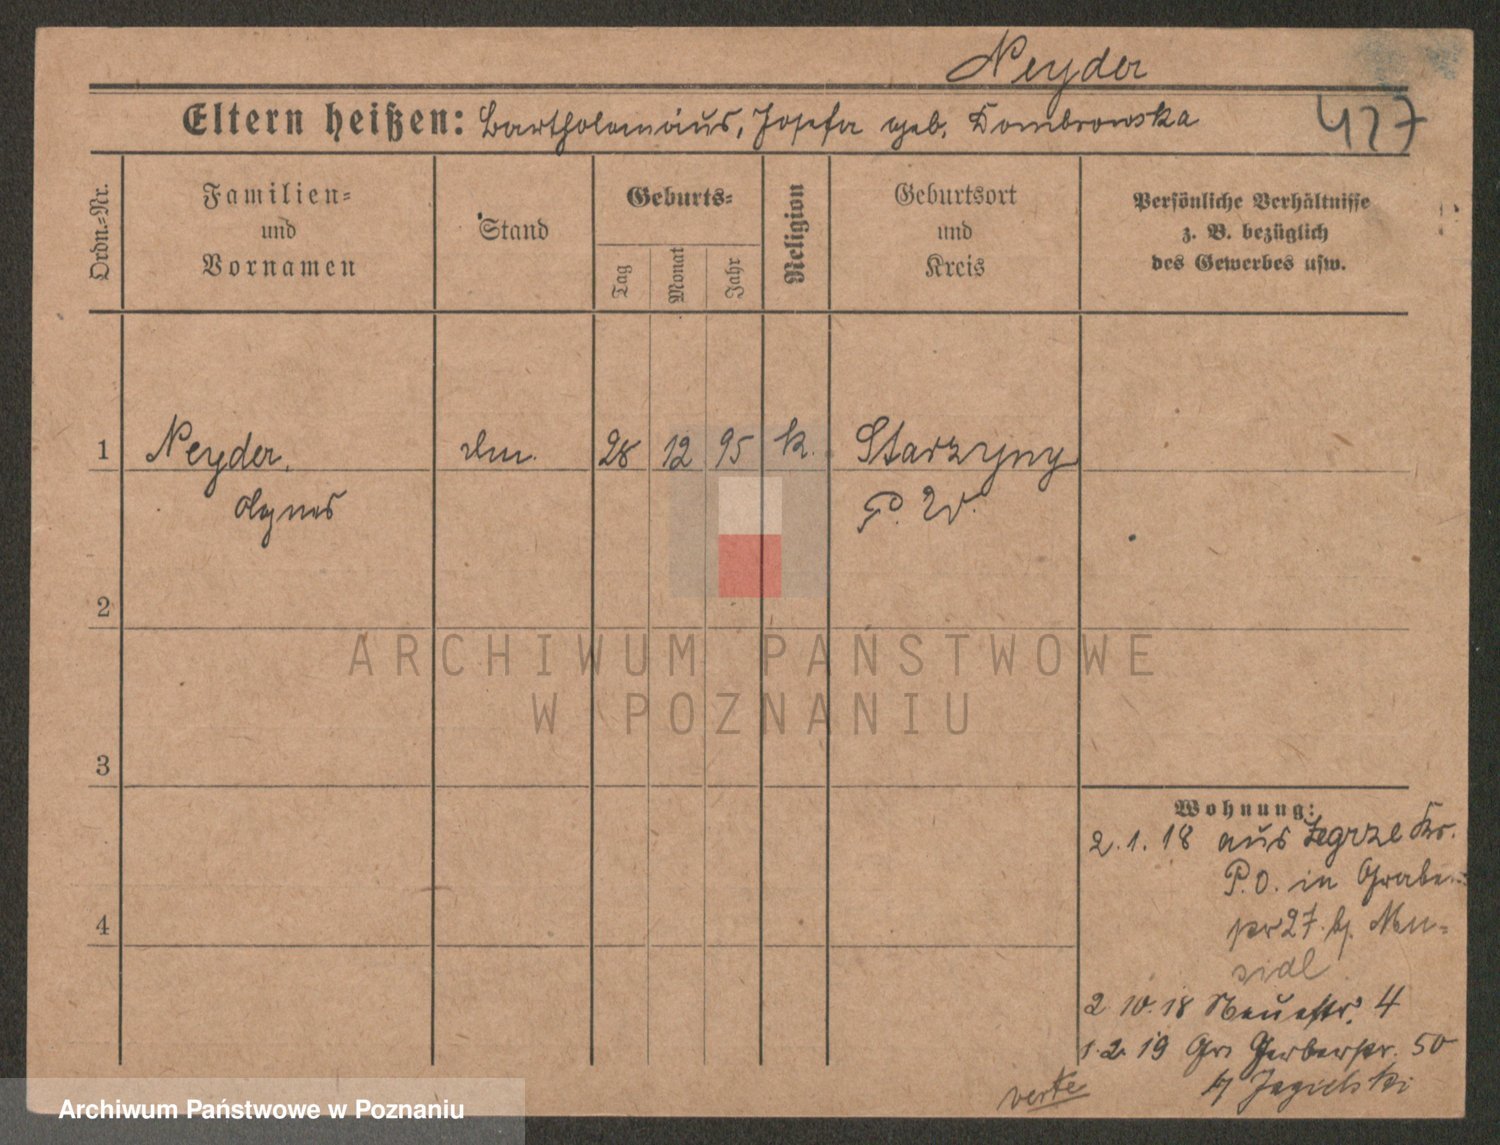 Neyder
Eltern heißen: Bartholomäus, Josefa geb. Dombrowska
427
Ordn.-Nr.
Familien-
und
Vornamen
Stand
Geburts-
Tag
Monat
Jahr
Religion
Geburtsort
und
Kreis
Persönliche Verhältnisse
z. B. bezüglich
des Gewerbes usw.
1 Neyder, 28 12 95 k. Starzyny
Agnes P. W.
2
ARCHIWUM PAŃSTWOWE
W POZNANIU
3
Wohnung:
2.1.18 aus Zegrze Kr.
P.O. in Grabe-
27. b. Mu-
4
sidl
2 10. 18 Neuestr. 4
1.2 19 Gr. Gerberstr. 50
b/ Jagielski
verte
Archiwum Państwowe w Poznaniu